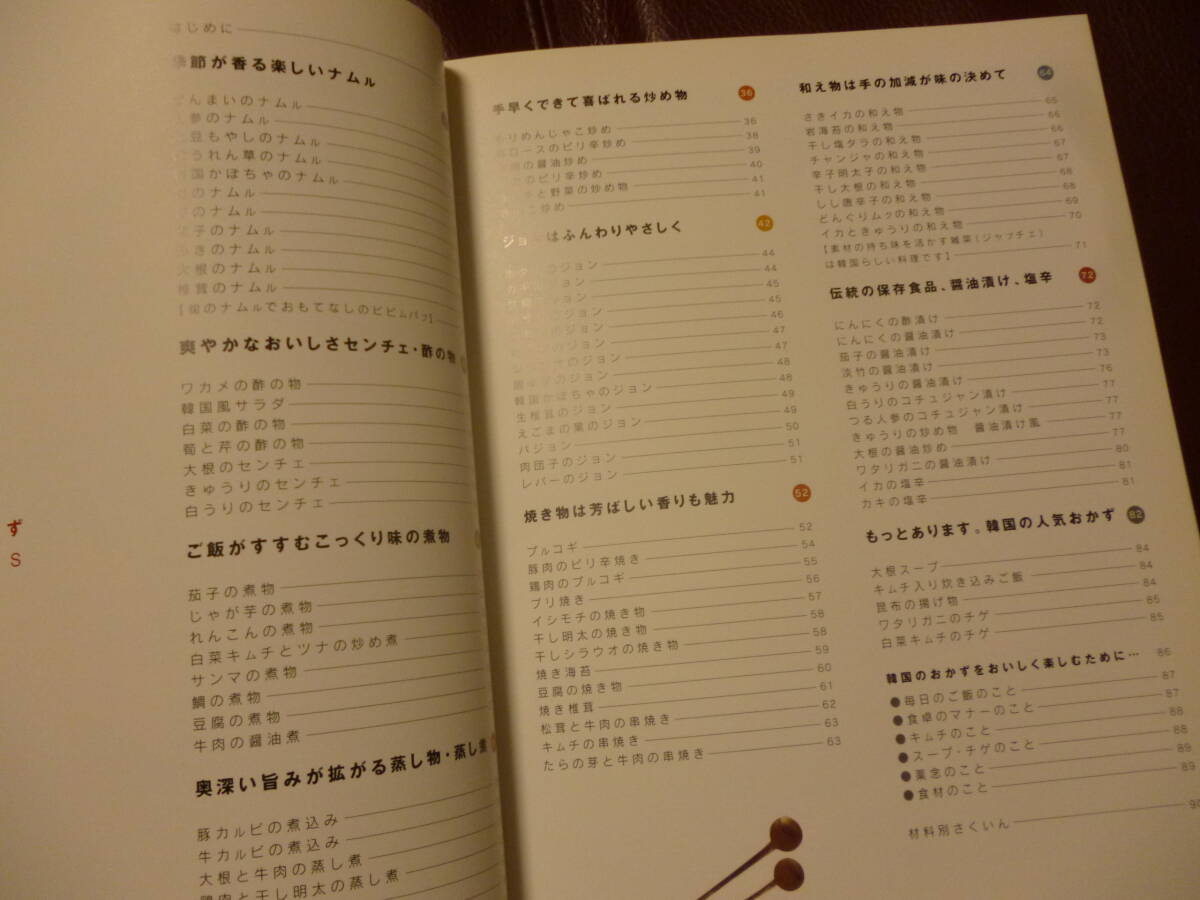 ず
S
はじめに
季節が香る楽しいナムル
ぜんまいのナムル
夢のナムル
豆もやしのナムル
ほうれん草のナムル
韓国かぼちゃのナムル
のナムル
のナムル
茄子のナムル
ふきのナムル
大根のナムル
椎茸のナムル
【旬のナムルでおもてなしのビビムパプ】
爽やかなおいしさセンチェ・酢の物
ワカメの酢の物
韓国風サラダ
白菜の酢の物
筍と芹の酢の物
大根のセンチェ
きゅうりのセンチェ
白うりのセンチェ
ご飯がすすむこっくり味の煮物
茄子の煮物
じゃが芋の煮物
れんこんの煮物
白菜キムチとツナの炒め煮
サンマの煮物
鯛の煮物
豆腐の煮物
牛肉の醤油煮
奥深い旨みが拡がる蒸し物・蒸し煮
豚カルビの煮込み
牛カルビの煮込み
大根と牛肉の蒸し煮
鶏肉と干し明太の蒸し煮
手早くできて喜ばれる炒め物 36
ちりめんじゃこ炒め 36
ロースのピリ辛炒め 38
の醤油炒め 39
のピリ辛炒め 40
と野菜の炒め物 41
炒め 41
ジョンはふんわりやさしく 42
のジョン 44
ジョン 44
ジョン 45
のジョン 45
のジョン 46
のジョン 47
のジョン 47
のジョン 48
韓国かぼちゃのジョン 48
生椎茸のジョン 49
えごまの葉のジョン 49
パジョン 50
肉団子のジョン 51
レバーのジョン 51
焼き物は芳ばしい香りも魅力 52
プルコギ 52
豚肉のピリ辛焼き 54
鶏肉のプルコギ 55
ブリ焼き 56
イシモチの焼き物 57
干し明太の焼き物 58
干しシラウオの焼き物 58
焼き海苔 59
豆腐の焼き物 60
焼き椎茸 61
松茸と牛肉の串焼き 62
キムチの串焼き 63
たらの芽と牛肉の串焼き 63
和え物は手の加減が味の決めて 64
さきイカの和え物 65
岩海苔の和え物 66
干し塩ダラの和え物 66
チャンジャの和え物 67
辛子明太子の和え物 67
干し大根の和え物 68
しし唐辛子の和え物 68
どんぐりムックの和え物 69
イカときゅうりの和え物 70
【素材の持ち味を活かす雑菜（ジャプチェ）
は韓国らしい料理です】 71
伝統の保存食品、醤油漬け、塩辛 72
にんにくの酢漬け 72
にんにくの醤油漬け 72
茄子の醤油漬け 73
淡竹の醤油漬け 73
きゅうりの醤油漬け 76
白うりのコチュジャン漬け 77
つる人参のコチュジャン漬け 77
きゅうりの炒め物 醤油漬け風 77
大根の醤油炒め 77
ワタリガニの醤油漬け 80
イカの塩辛 81
カキの塩辛 81
もっとあります。韓国の人気おかず 82
大根スープ 84
キムチ入り炊き込みご飯 84
昆布の揚げ物 84
ワタリガニのチゲ 85
白菜キムチのチゲ 85
韓国のおかずをおいしく楽しむために… 86
●毎日のご飯のこと 87
●食卓のマナーのこと 87
●キムチのこと 88
●スープ・チゲのこと 88
●薬念のこと 89
●食材のこと 89
材料別さくいん 90